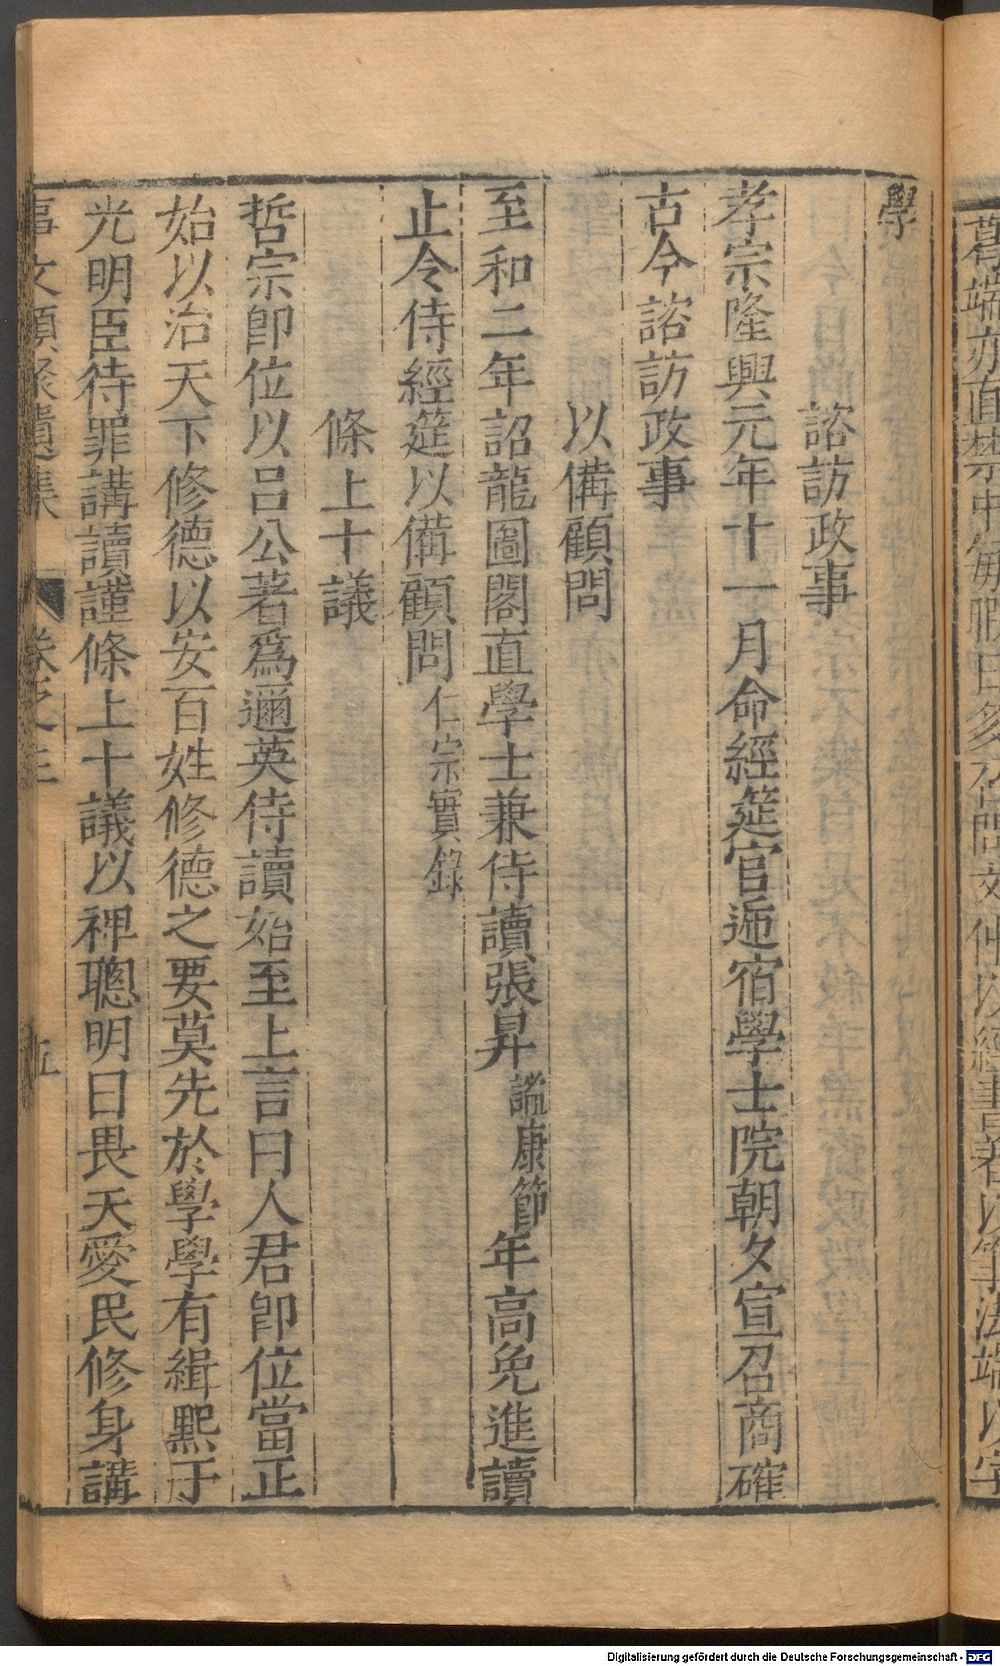 學
諮訪政事
孝宗隆興元年十一月命經筵官遞宿學士院朝夕宣召商確
古今諮訪政事
以備顧問
至和二年詔龍圖閣直學士兼侍讀張昇謚康節年高免進讀
止令侍經筵以備顧問仁宗實錄
條上十議
哲宗卽位以呂公著爲邇英侍讀始至上言曰人君卽位當正
始以治天下修德以安百姓修德之要莫先於學學有緝熙于
光明臣待罪講讀謹條上十議以裨聰明曰畏天愛民修身講
事文類聚遺集 卷之三 五
Digitalisierung gefördert durch die Deutsche Forschungsgemeinschaft - DFG